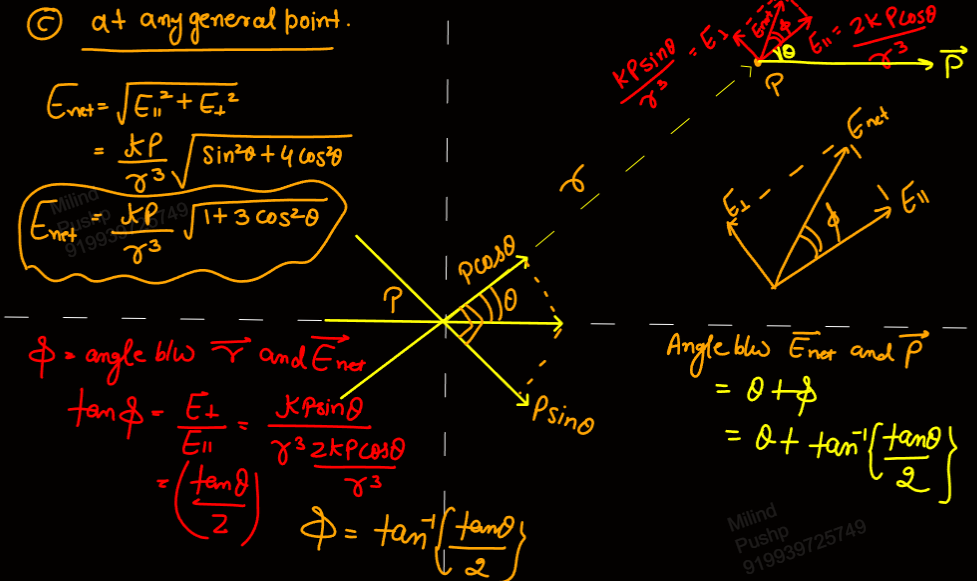 ⓒ at any general point.
E_net = √(E_∥² + E_⊥²)
= kP/r³ √(sin²θ + 4cos²θ)
E_net = kP/r³ √(1 + 3cos²θ)
Milind
Pushp
919939725749
kPsinθ/r³ = E_⊥
E_net
ϕ
E_∥ = 2kPcosθ/r³
θ
P
P⃗
r
E_net
E_⊥
E_∥
ϕ
Pcosθ
P
θ
Psinθ
ϕ = angle b/w r⃗ and E⃗_net
tanϕ = E_⊥/E_∥ = kPsinθ/(r³ 2kPcosθ/r³)
= (tanθ/2)
ϕ = tan⁻¹{tanθ/2}
Angle b/w E⃗_net and P⃗
= θ + ϕ
= θ + tan⁻¹{tanθ/2}
Milind
Pushp
919939725749